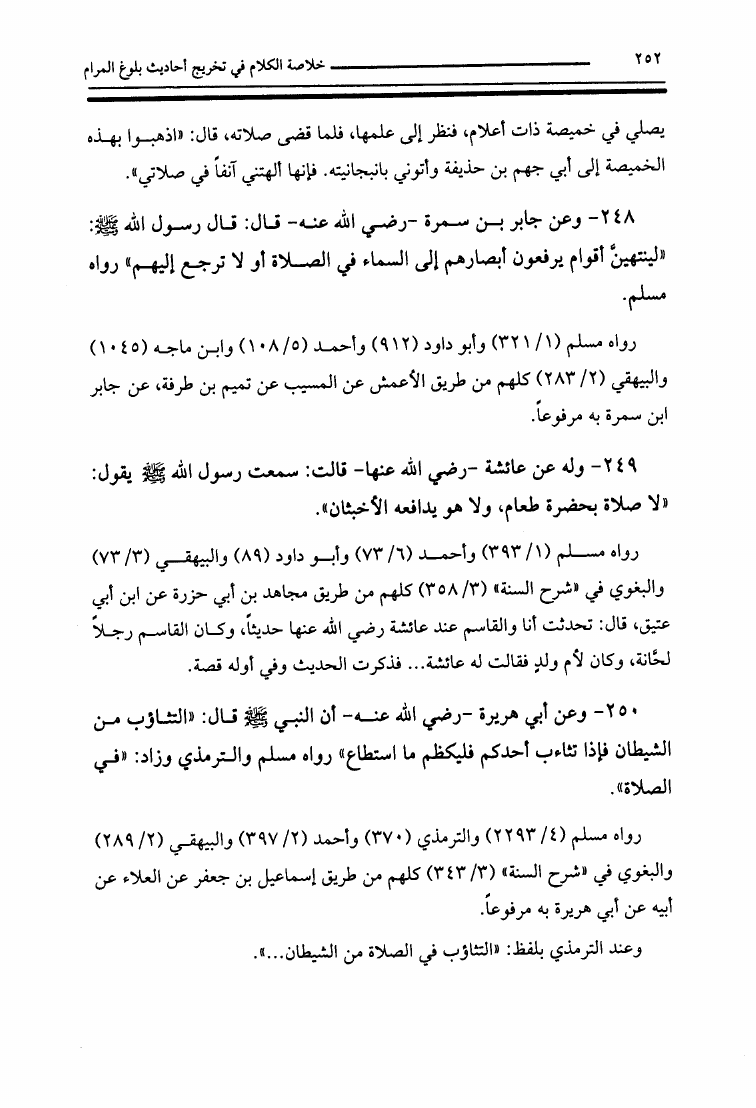 ٢٥٢ خلاصة الكلام في تخريج أحاديث بلوغ المرام
يصلي في خميصة ذات أعلام، فنظر إلى علمها، فلما قضى صلاته، قال: «اذهبـوا بهـذه
الخميصة إلى أبي جهم بن حذيفة وأتوني بانبجانيته. فإنها ألهتني آنفاً في صلاتي».
٢٤٨- وعن جابر بـن سـمرة -رضـي الله عنـه- قـال: قـال رسـول الله ﷺ:
«لينتهينَّ أقوام يرفعون أبصارهم إلى السماء في الصـلاة أو لا ترجـع إليهـم» رواه
مسلم.
رواه مسلم (١/ ٣٢١) وأبو داود (٩١٢) وأحمـد (٥/ ١٠٨) وابـن ماجـه (١٠٤٥)
والبيهقي (٢/ ٢٨٣) كلهم من طريق الأعمش عن المسيب عن تميم بن طرفة، عن جابر
ابن سمرة به مرفوعاً.
٢٤٩- وله عن عائشة -رضي الله عنها- قالت: سمعت رسول الله ﷺ يقول:
«لا صلاة بحضرة طعام، ولا هو يدافعه الأخبثان».
رواه مسـلم (١/ ٣٩٣) وأحمـد (٦/ ٧٣) وأبـو داود (٨٩) والبيهقـي (٣/ ٧٣)
والبغوي في «شرح السنة» (٣/ ٣٥٨) كلهم من طريق مجاهد بن أبي حزرة عن ابن أبي
عتيق، قال: تحدثت أنا والقاسم عند عائشة رضي الله عنها حديثاً، وكـان القاسـم رجـلاً
لحَّانة، وكان لأم ولدٍ فقالت له عائشة... فذكرت الحديث وفي أوله قصة.
٢٥٠- وعن أبي هريرة -رضي الله عنـه- أن النبي ﷺ قـال: «التثـاؤب مـن
الشيطان فإذا تثاءب أحدكم فليكظم ما استطاع» رواه مسلم والـترمذي وزاد: «فـي
الصلاة».
رواه مسلم (٤/ ٢٢٩٣) والترمذي (٣٧٠) وأحمد (٢/ ٣٩٧) والبيهقـي (٢/ ٢٨٩)
والبغوي في «شرح السنة» (٣/ ٣٤٣) كلهم من طريق إسماعيل بن جعفر عن العلاء عن
أبيه عن أبي هريرة به مرفوعاً.
وعند الترمذي بلفظ: «التثاؤب في الصلاة من الشيطان...».